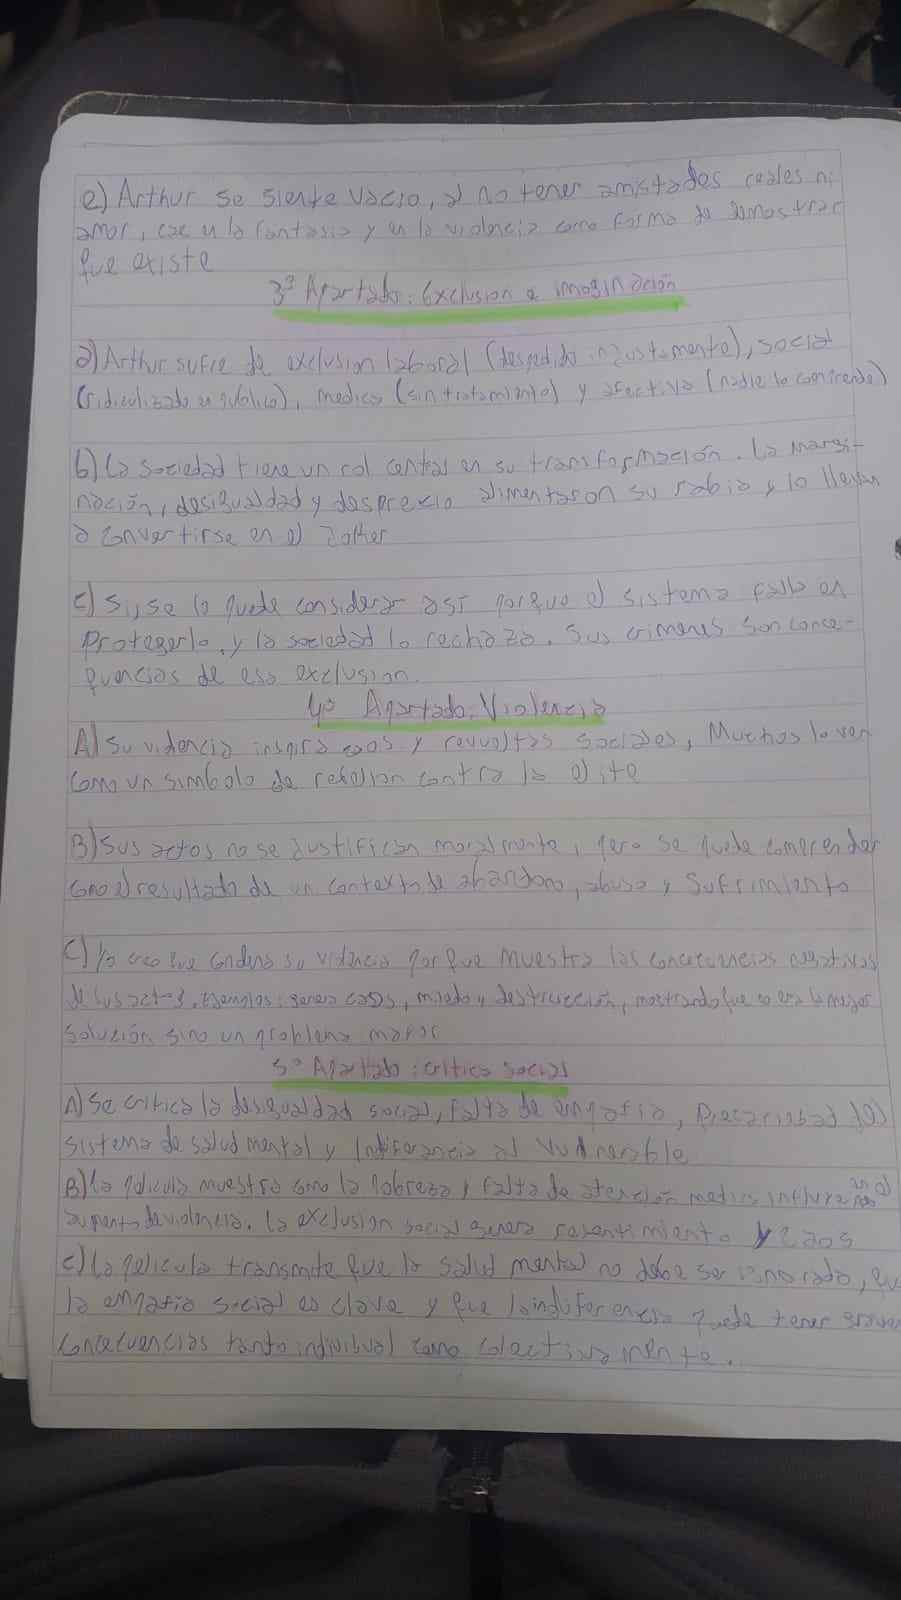 e) Arthur se siente vacio, al no tener amistades reales ni
amor, cae en la fantasia y en la violencia como forma de demostrar
que existe
3º Apartado: Exclusion e imaginación
a) Arthur sufre de exclusion laboral (despedido injustamente), social
(ridiculizado en publico), medica (sin tratamiento) y afectiva (nadie lo comprende)
b) La sociedad tiene un rol central en su transformación. La margi-
nación, desigualdad y desprecio alimentaron su rabia y lo llevan
a convertirse en el Joker
c) Si, se lo puede considerar asi porque el sistema falla en
protegerlo, y la sociedad lo rechaza. Sus crimenes son conse-
quencias de esa exclusion.
4º Apartado: Violencia
A) Su violencia inspira caos y revueltas sociales, Muchos lo ven
como un simbolo de rebelion contra la elite
B) Sus actos no se justifican moralmente, pero se puede comprender
como el resultado de un contexto de abandono, abuso y sufrimiento
C) Yo creo que condena su violencia porque muestra las concecuencias negativas
de sus actos. Ejemplos: genera caos, miedo y destrucción, mostrando que no era la mejor
solución sino un problema mayor
5º Apartado: critica social
A) Se critica la desigualdad social, falta de empatia, Precariedad del
sistema de salud mental y Indiferencia al Vulnerable
B) La pelicula muestra como la pobreza y falta de atención medica influyen en el
aumento de violencia. La exclusion social genera resentimiento y caos
C) La pelicula transmite que la salud mental no debe ser ignorada, que
la empatia social es clave y que la indiferencia puede tener graves
concecuencias tanto individual como colectivamente.